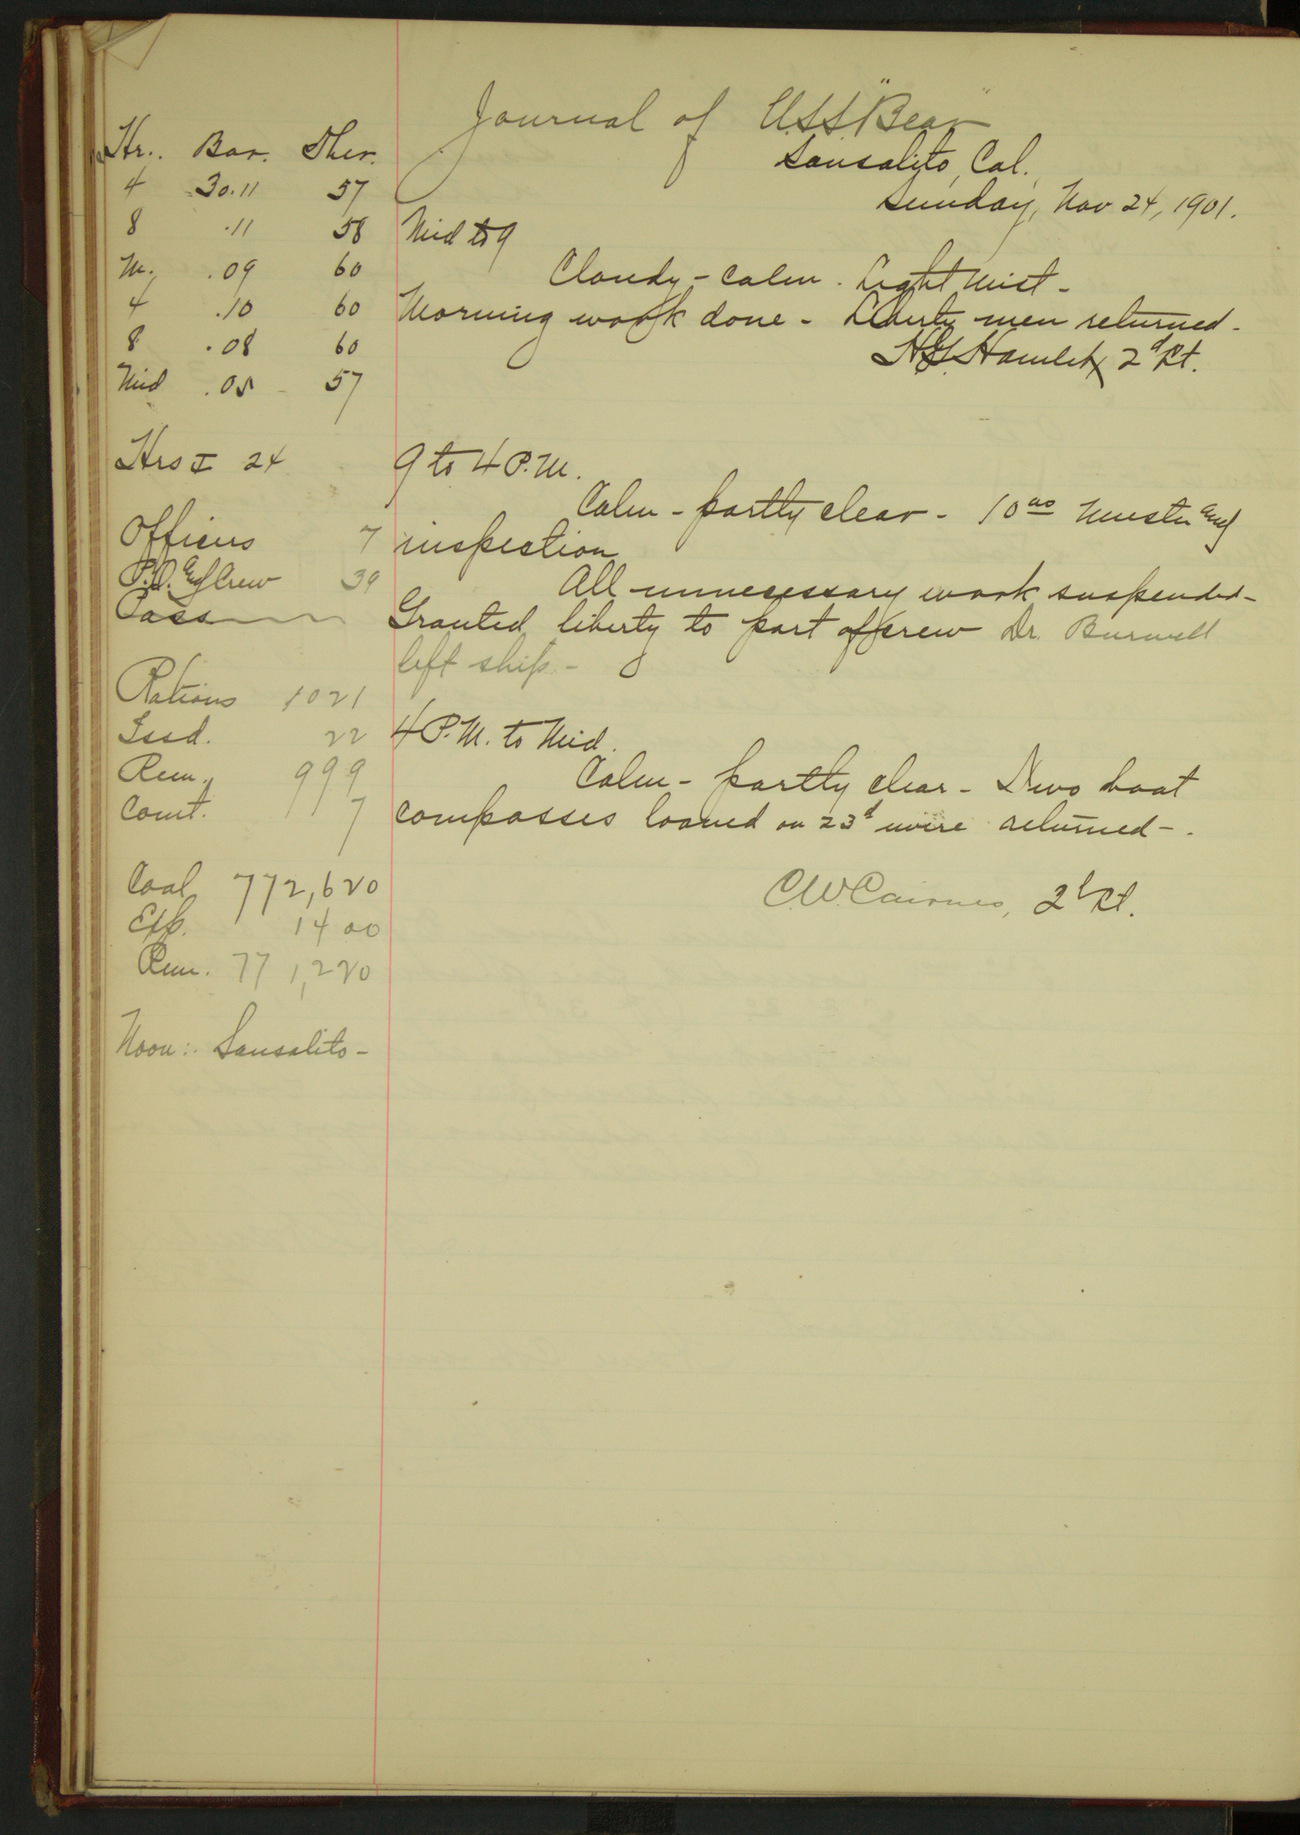 Journal of U.S.S. "Bear"
Sausalito, Cal.
Sunday, Nov 24, 1901.
Hr. Bar. Ther.
4 30.11 57
8 .11 58
M. .09 60
4 .10 60
8 .08 60
Mid .05 57
Hrs I 24
Officers 7
P.O. and Crew 39
Pass
Rations 1021
Issd. 22
Rem. 999
Comt. 7
Coal 772,620
Exp. 1400
Rem. 771,220
Noon: Sausalito-
Mid to 9
Cloudy - calm. Light mist -
Morning work done - Liberty men returned -
H.G. Hamlet, 2d Lt.
9 to 4 P.M.
Calm - partly clear - 10 00 Muster and
inspection
All unnecessary work suspended -
Granted liberty to part of crew Dr. Burwell
left ship -
4 P.M. to Mid.
Calm - partly clear - Two boat
compasses loaned on 23d were returned -.
C.W. Cairnes, 2d Lt.